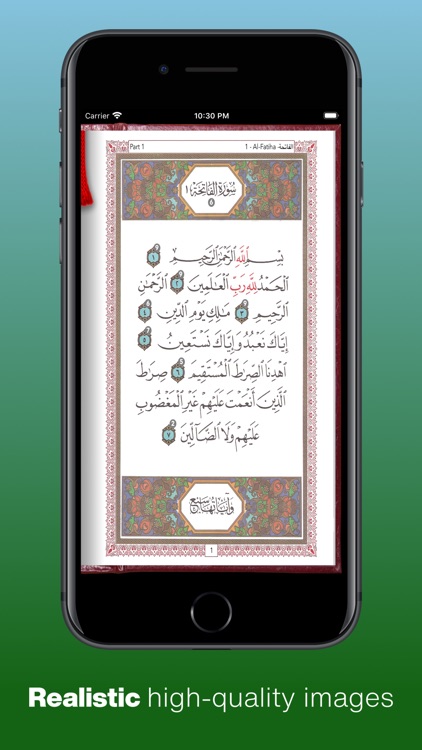 Carrier 10:30 PM
Part 1 1 - Al-Fatiha الفاتحة
سُورَةُ الفَاتِحَةِ ١
بِسْمِ ٱللَّهِ ٱلرَّحْمَٰنِ ٱلرَّحِيمِ ١
ٱلْحَمْدُ لِلَّهِ رَبِّ ٱلْعَٰلَمِينَ ٢ ٱلرَّحْمَٰنِ
ٱلرَّحِيمِ ٣ مَٰلِكِ يَوْمِ ٱلدِّينِ ٤
إِيَّاكَ نَعْبُدُ وَإِيَّاكَ نَسْتَعِينُ ٥
ٱهْدِنَا ٱلصِّرَٰطَ ٱلْمُسْتَقِيمَ ٦ صِرَٰطَ
ٱلَّذِينَ أَنْعَمْتَ عَلَيْهِمْ غَيْرِ ٱلْمَغْضُوبِ
عَلَيْهِمْ وَلَا ٱلضَّآلِّينَ ٧
وَآيَاتُهَا سَبْعٌ
1
Realistic high-quality images